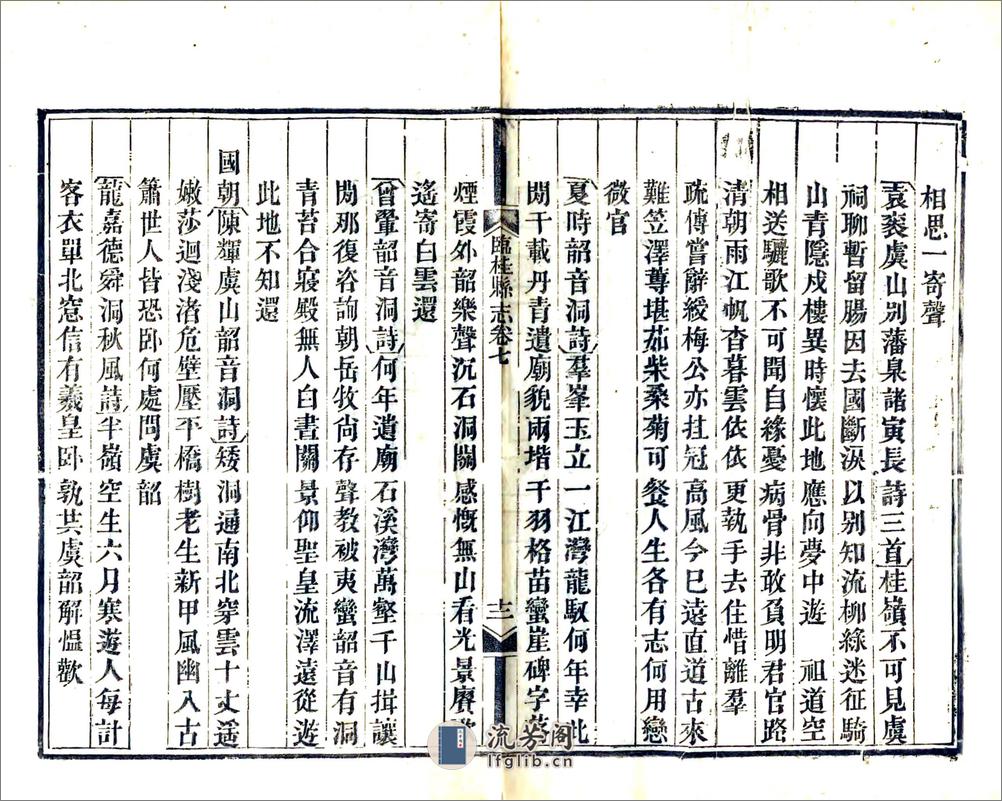 相思一寄聲
袁袠虞山别藩臬諸寅長詩三首桂嶺不可見虞
祠聊暫留腸因去國斷淚以别知流柳綠迷征騎
山青隱戍樓異時懷此地應向夢中遊 祖道空
相送驪歌不可聞自緣憂病骨非敢負明君官路
清朝雨江帆杳暮雲依依更執手去住惜離羣
疏傅嘗辭綬梅公亦挂冠高風今已遠直道古來
難笠澤蓴堪茹柴桑菊可餐人生各有志何用戀
微官
夏時韶音洞詩羣峯玉立一江灣龍馭何年幸此
間千載丹青遺廟貌兩堦干羽格苗蠻崖碑字
臨桂縣志卷七
十二
煙霞外韶樂聲沉石洞關感慨無山看光景賡
遙寄白雲還
曾鞏韶音洞詩何年遺廟石溪灣萬壑千山揖讓
間那復咨詢朝岳牧尚存聲教被夷蠻韶音有洞
青苔合寢殿無人白晝關景仰聖皇流澤遠從遊
此地不知還
國朝陳輝虞山韶音洞詩矮洞通南北穿雲十丈遥
嫩莎迴淺渚危壁壓平橋樹老生新甲風幽入古
簫世人皆恐卧何處問虞韶
龍嘉德舜洞秋風詩半嶺空生六月寒遊人每計
客衣單北窓信有羲皇卧孰共虞韶解慍歡
流芳阁
lfglib.cn